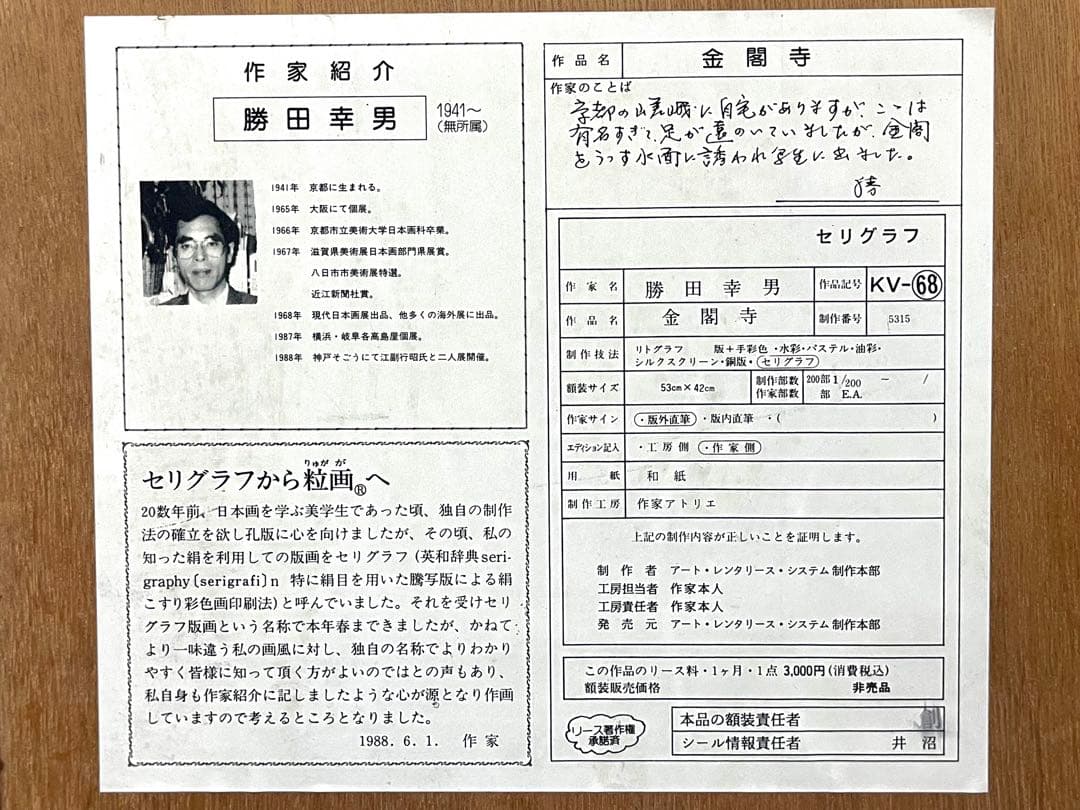 作家紹介
勝田幸男
1941～
(無所属)
1941年 京都に生まれる。
1965年 大阪にて個展。
1966年 京都市立美術大学日本画科卒業。
1967年 滋賀県美術展日本画部門県展賞。
八日市市美術展特選。
近江新聞社賞。
1968年 現代日本画展出品、他多くの海外展に出品。
1987年 横浜・岐阜各高島屋個展。
1988年 神戸そごうにて江副行昭氏と二人展開催。
りゅうが が
セリグラフから粒画®へ
20数年前、日本画を学ぶ美学生であった頃、独自の制作
法の確立を欲し孔版に心を向けましたが、その頃、私の
知った絹を利用しての版画をセリグラフ(英和辞典seri-
graphy〔serigrafi〕n 特に絹目を用いた騰写版による絹
こすり彩色画印刷法)と呼んでいました。それを受けセリ
グラフ版画という名称で本年春まできましたが、かねて
より一味違う私の画風に対し、独自の名称でよりわかり
やすく皆様に知って頂く方がよいのではとの声もあり、
私自身も作家紹介に記しましたような心が源となり作画
していますので考えるところとなりました。
1988. 6. 1. 作家
作品名 金閣寺
作家のことば
京都の嵯峨に自宅がありますが、ここは
有名すぎて、足が遠のいていましたが、金閣
をうつす水面に誘われ写生に出ました。
セリグラフ
作家名 勝田幸男 作品記号 KV-68
作品名 金閣寺 制作番号 5315
制作技法 リトグラフ 版+手彩色・水彩・パステル・油彩・
シルクスクリーン・銅版・セリグラフ
額装サイズ 53cm×42cm 制作部数 200部 1/200 － /
作家部数 部 E.A.
作家サイン ・版外直筆・版内直筆・( )
エディション記入 ・工房側 ・作家側
用紙 和紙
制作工房 作家アトリエ
上記の制作内容が正しいことを証明します。
制作者 アート・レンタリース・システム制作本部
工房担当者 作家本人
工房責任者 作家本人
発売元 アート・レンタリース・システム制作本部
この作品のリース料・1ヶ月・1点 3,000円(消費税込)
額装販売価格 非売品
リース著作権
承諾済
本品の額装責任者 創
シール情報責任者 井沼